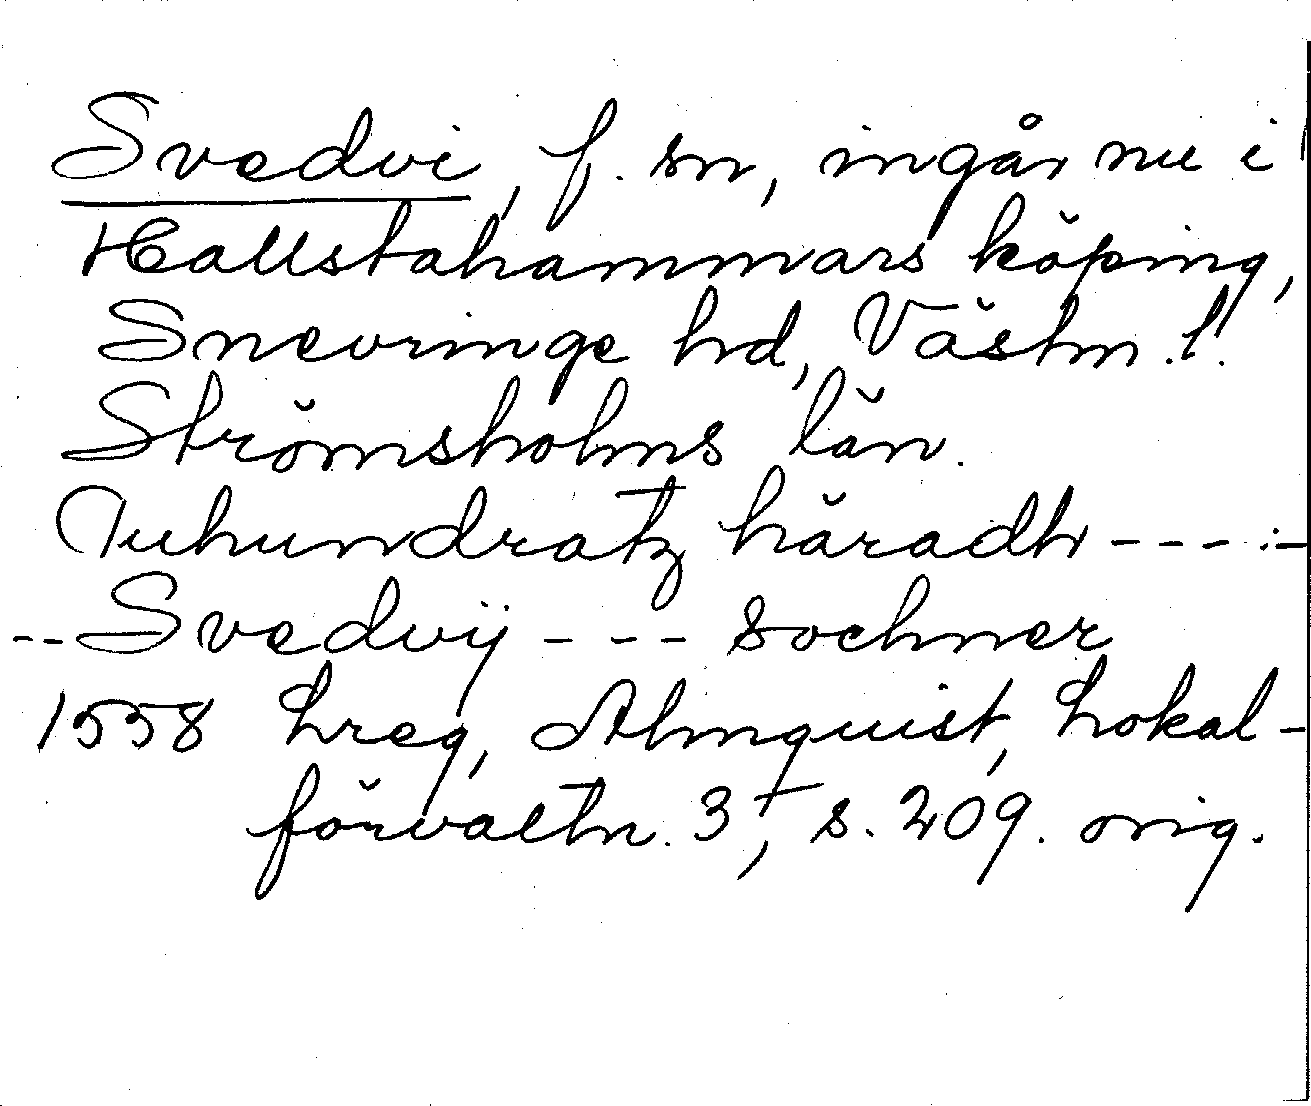 Svedvi, f. sn, ingår nu i
Hallstahammars köping,
Snevringe hd, Västm. l.
Strömsholms län.
Tuhundratz häradh - - - -
-- Svedvij - - - sochner
1558 hreg, Almquist, Lokal-
förvaltn. 3, s. 209. orig.